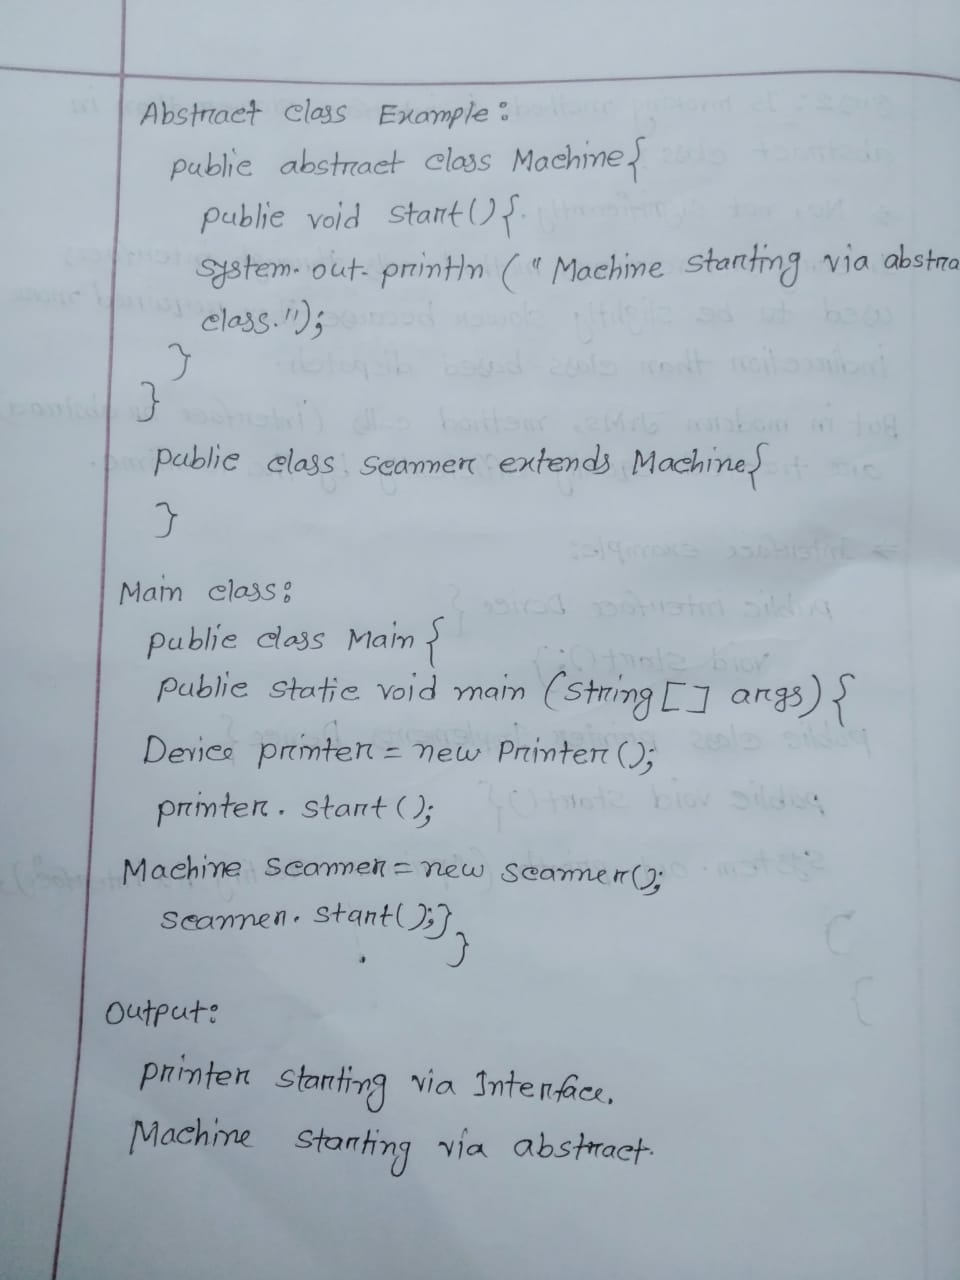 Abstract class Example:
public abstract class Machine{
public void start(){
System.out.println ("Machine starting via abstra
class.");
}
}
public class scanner extends Machine{
}
Main class:
public class Main {
public static void main (String [] args) {
Device printer = new Printer();
printer. start();
Machine scanner = new scanner();
scanner. start();}
}
Output:
printer starting via Interface.
Machine starting via abstract.